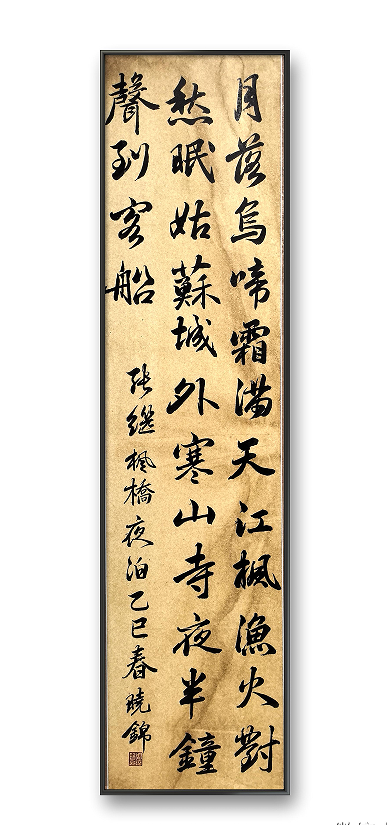 月落烏啼霜滿天江楓漁火對
愁眠姑蘇城外寒山寺夜半鐘
聲到客船
張繼楓橋夜泊乙巳春曉錦